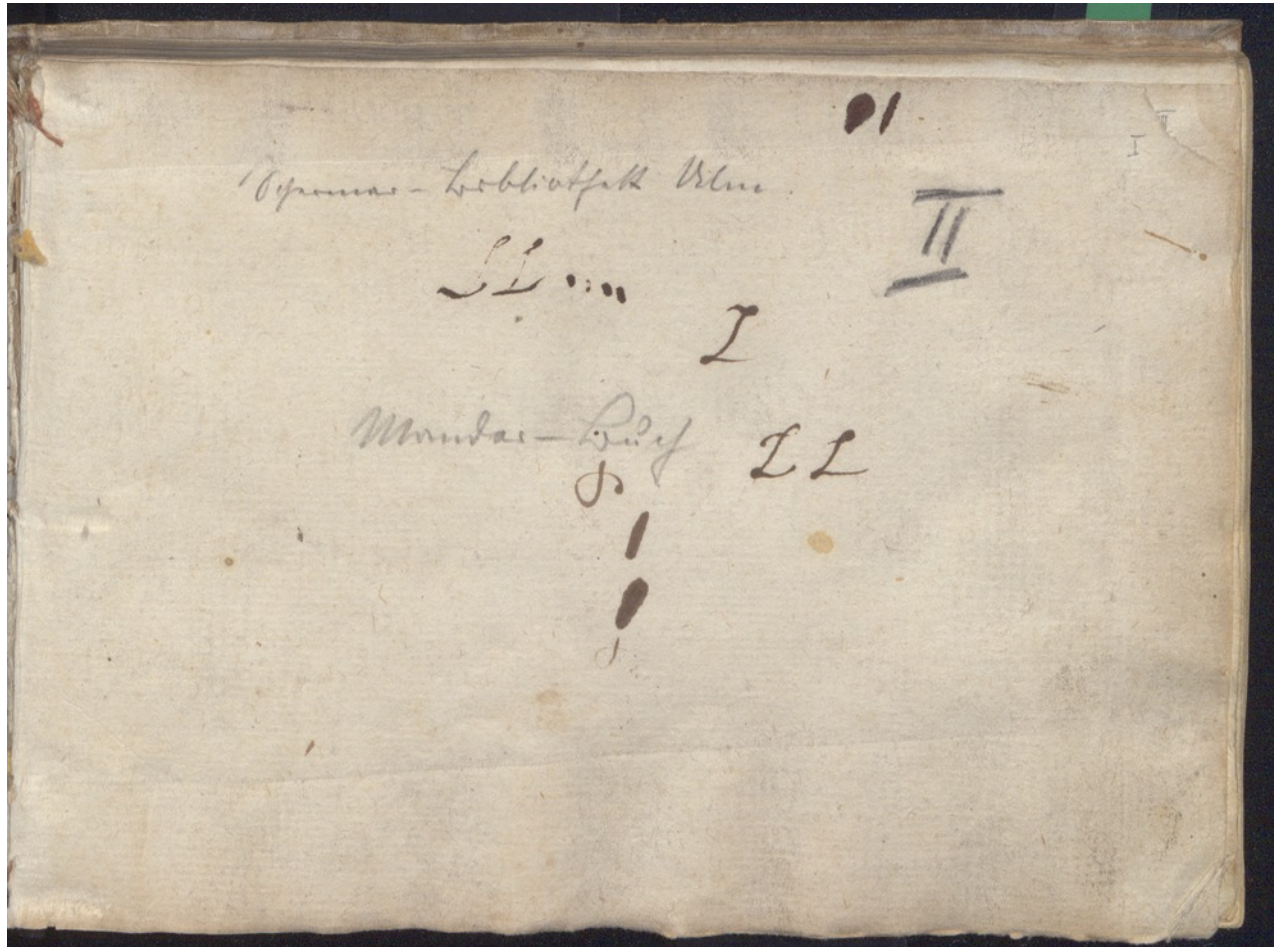 I
Schermar-Bibliothek Ulm.
II
LL
L
Mandar-Buch LL